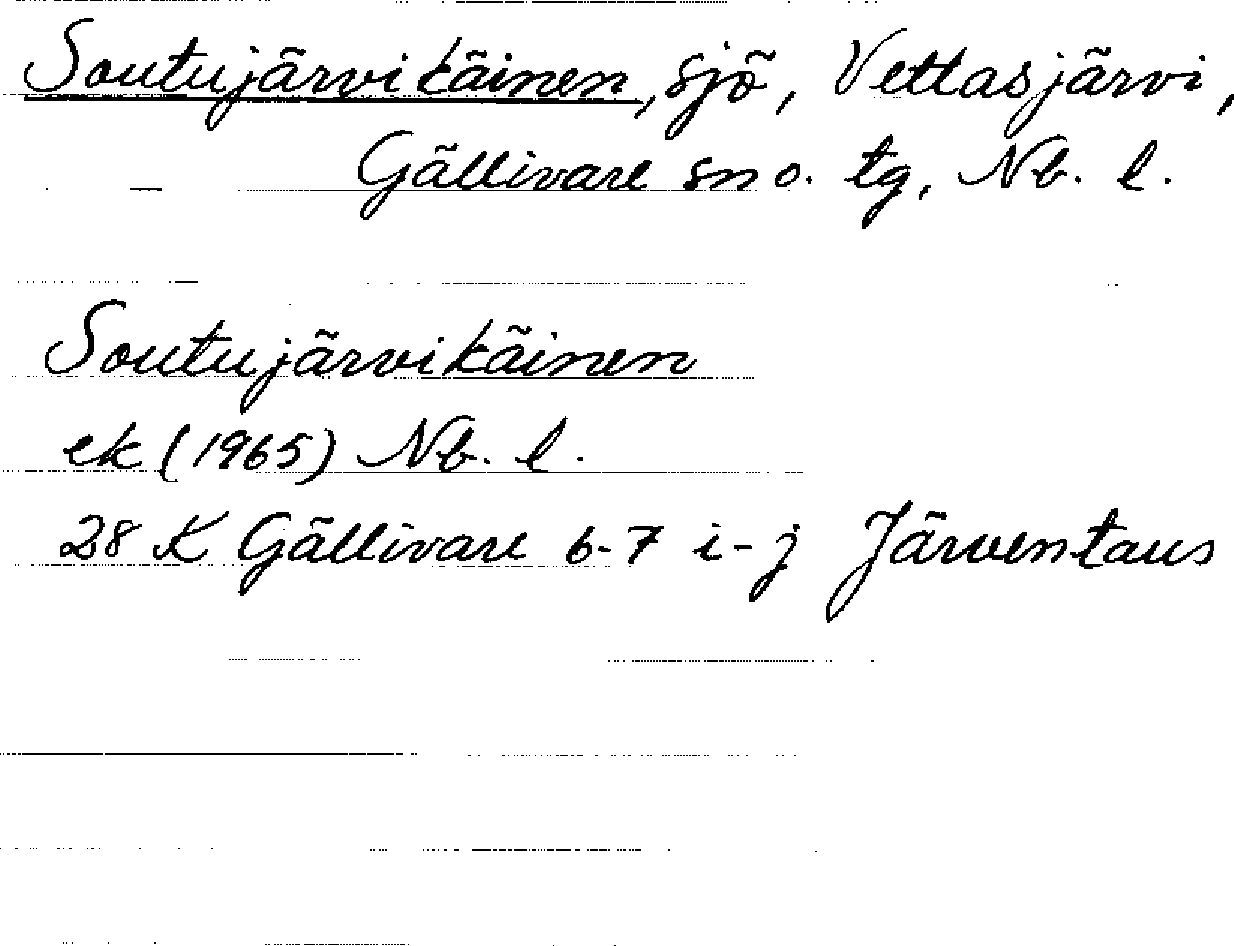 Soutujärvikäinen, sjö, Vettasjärvi,
Gällivare sn o. tg, Nb. l.
Soutujärvikäinen
ek (1965) Nb. l.
28 K Gällivare 6-7 i-j Järventaus